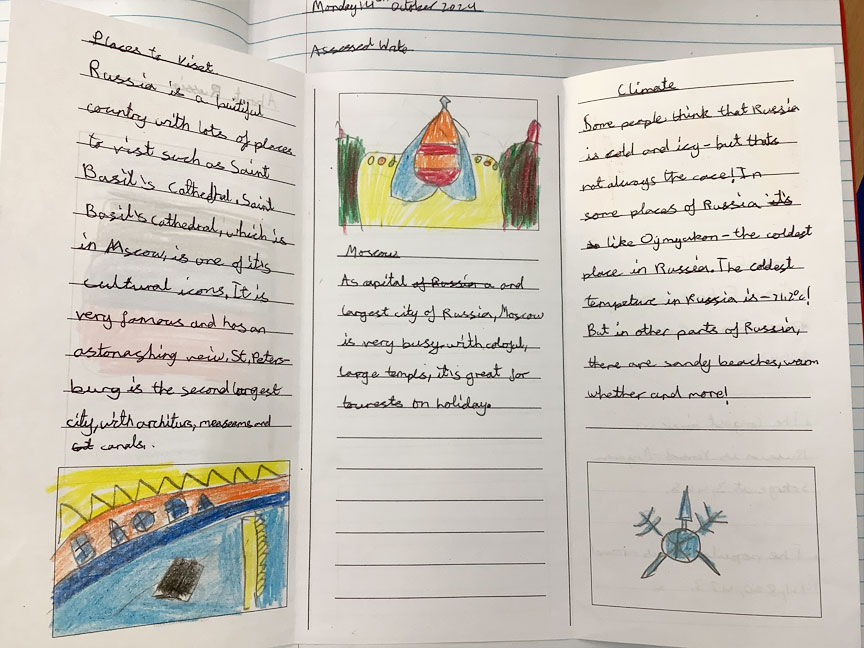 Monday 14th October 2024
Assessed Wake
Places to Viset
Russia is a beitiful
country with lots of places
to visit such as Saint
Basil's cathedral. Saint
Basil's cathedral, which is
in Mscow, is one of it's
cultural icons. It is
very famous and has an
astonashing veiw. St. Peters-
burg is the second largest
city, with architurs, measeams and
canals.
Moscow
As capital of Russia a and
largest city of Russia, Moscow
is very busy. with coloful,
large templs, it is great for
tourests on holiday.
Climate
Some people think that Russia
is cold and icy - but thats
not always the case! In
some places of Russia it's
like Ojmyakon - the coldest
place in Russia. The coldest
tempeture in Russia is - 71.2°c!
But in other parts of Russia,
there are sandy beaches, warm
whether and more!